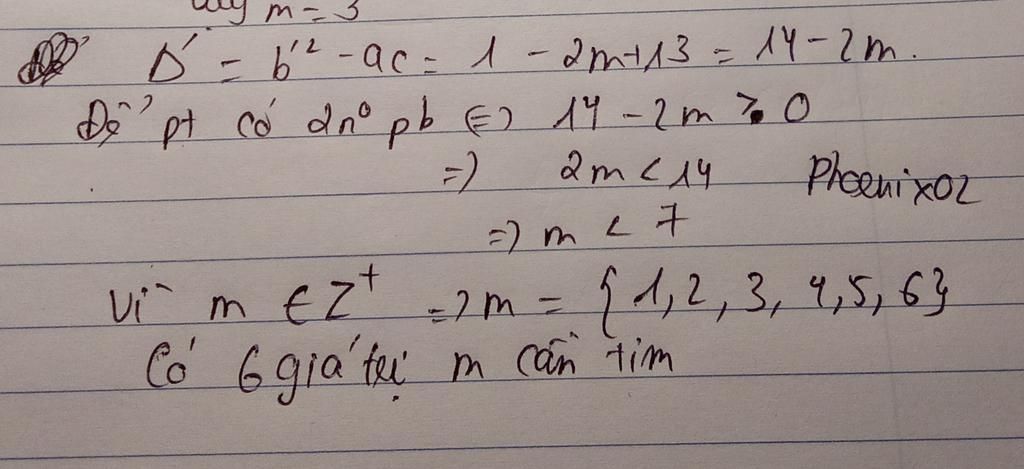 m = 3
Δ' = b'² - ac = 1 - 2m+13 = 14 - 2m.
Để pt có 2n⁰ pb (=) 14 - 2m > 0
=) 2m < 14 Phoenix02
=) m < 7
Vì m ∈ Z⁺ => m = {1, 2, 3, 4, 5, 6}
Có 6 giá trị m cần tìm